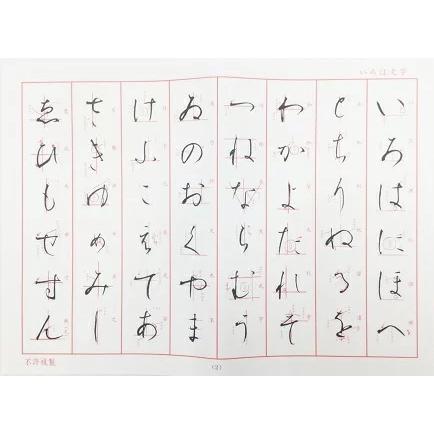 いろは文字
いろはにほへ
とちりぬるを
わかよたれそ
つねならむう
ゐのおくやま
けふこえてあ
さきゆめみし
ゑひもせすん
不許複製
(2)